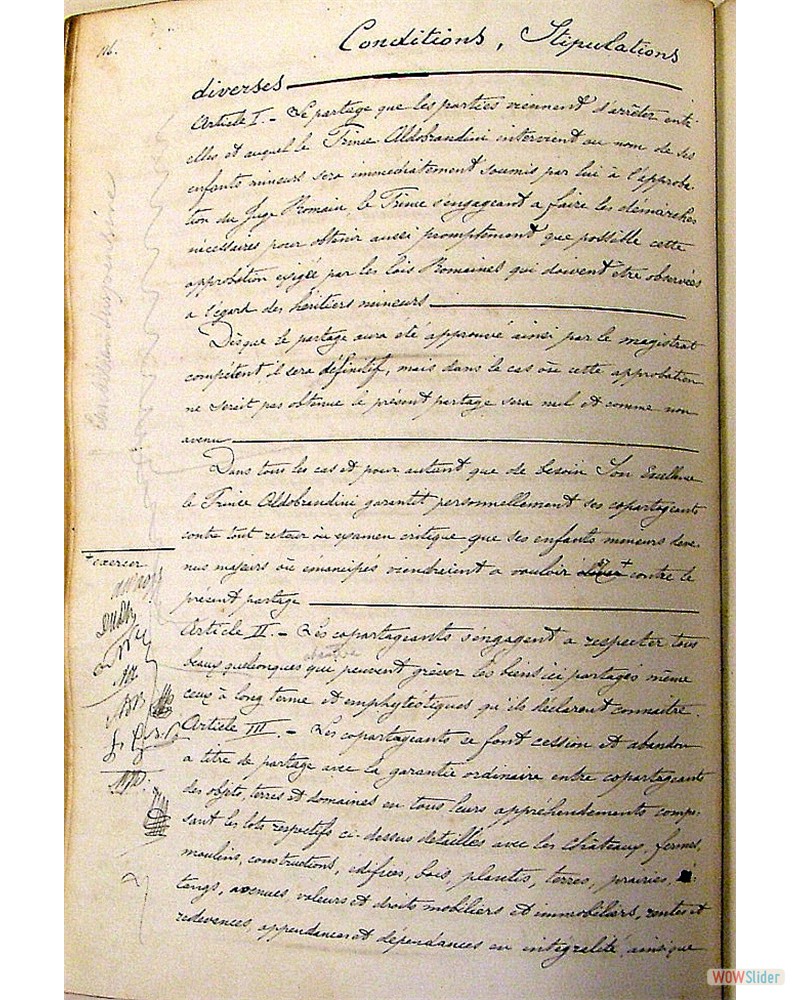 116.
Conditions, Stipulations
diverses
Article I. - Le partage que les parties viennent d'arrêter entr'
elles et auquel le Prince Aldobrandini intervient au nom de ses
enfants mineurs sera immédiatement soumis par lui à l'approba-
tion du Juge Romain, le Prince s'engageant a faire les démarches
nécessaires pour obtenir aussi promptement que possible cette
approbation exigée par les lois Romaines qui doivent être observées
a l'égard des héritiers mineurs
Dès que le partage aura été approuvé ainsi par le magistrat
compétent, il sera définitif, mais dans le cas où cette approbation
ne serait pas obtenue le présent partage sera nul et comme non
avenu
Dans tous les cas et pour autant que de besoin Son Excellence
le Prince Aldobrandini garantit personnellement ses copartageants
contre tout retour ou examen critique que ses enfants mineurs deve-
nus majeurs ou émancipés viendraient a vouloir + contre le
présent partage
+ exercer
Article II. - Les copartageants s'engagent a respecter tous
baux quelconques qui peuvent gréver les biens ici partagés même
ceux à long terme et emphytéotiques qu'ils déclarent connaître.
Article III. - Les copartageants se font cession et abandon
a titre de partage avec la garantie ordinaire entre copartageants
des objets, terres et domaines en tous leurs appréhendements compo-
sant les lots respectifs ci-dessus détaillés avec les châteaux, fermes,
moulins, constructions, édifices, bois, plantis, terres, prairies, é-
tangs, avenues, valeurs et droits mobiliers et immobiliers, rentes et
redevences, appendances et dépendances en intégralité, ainsi que
WOWSlider